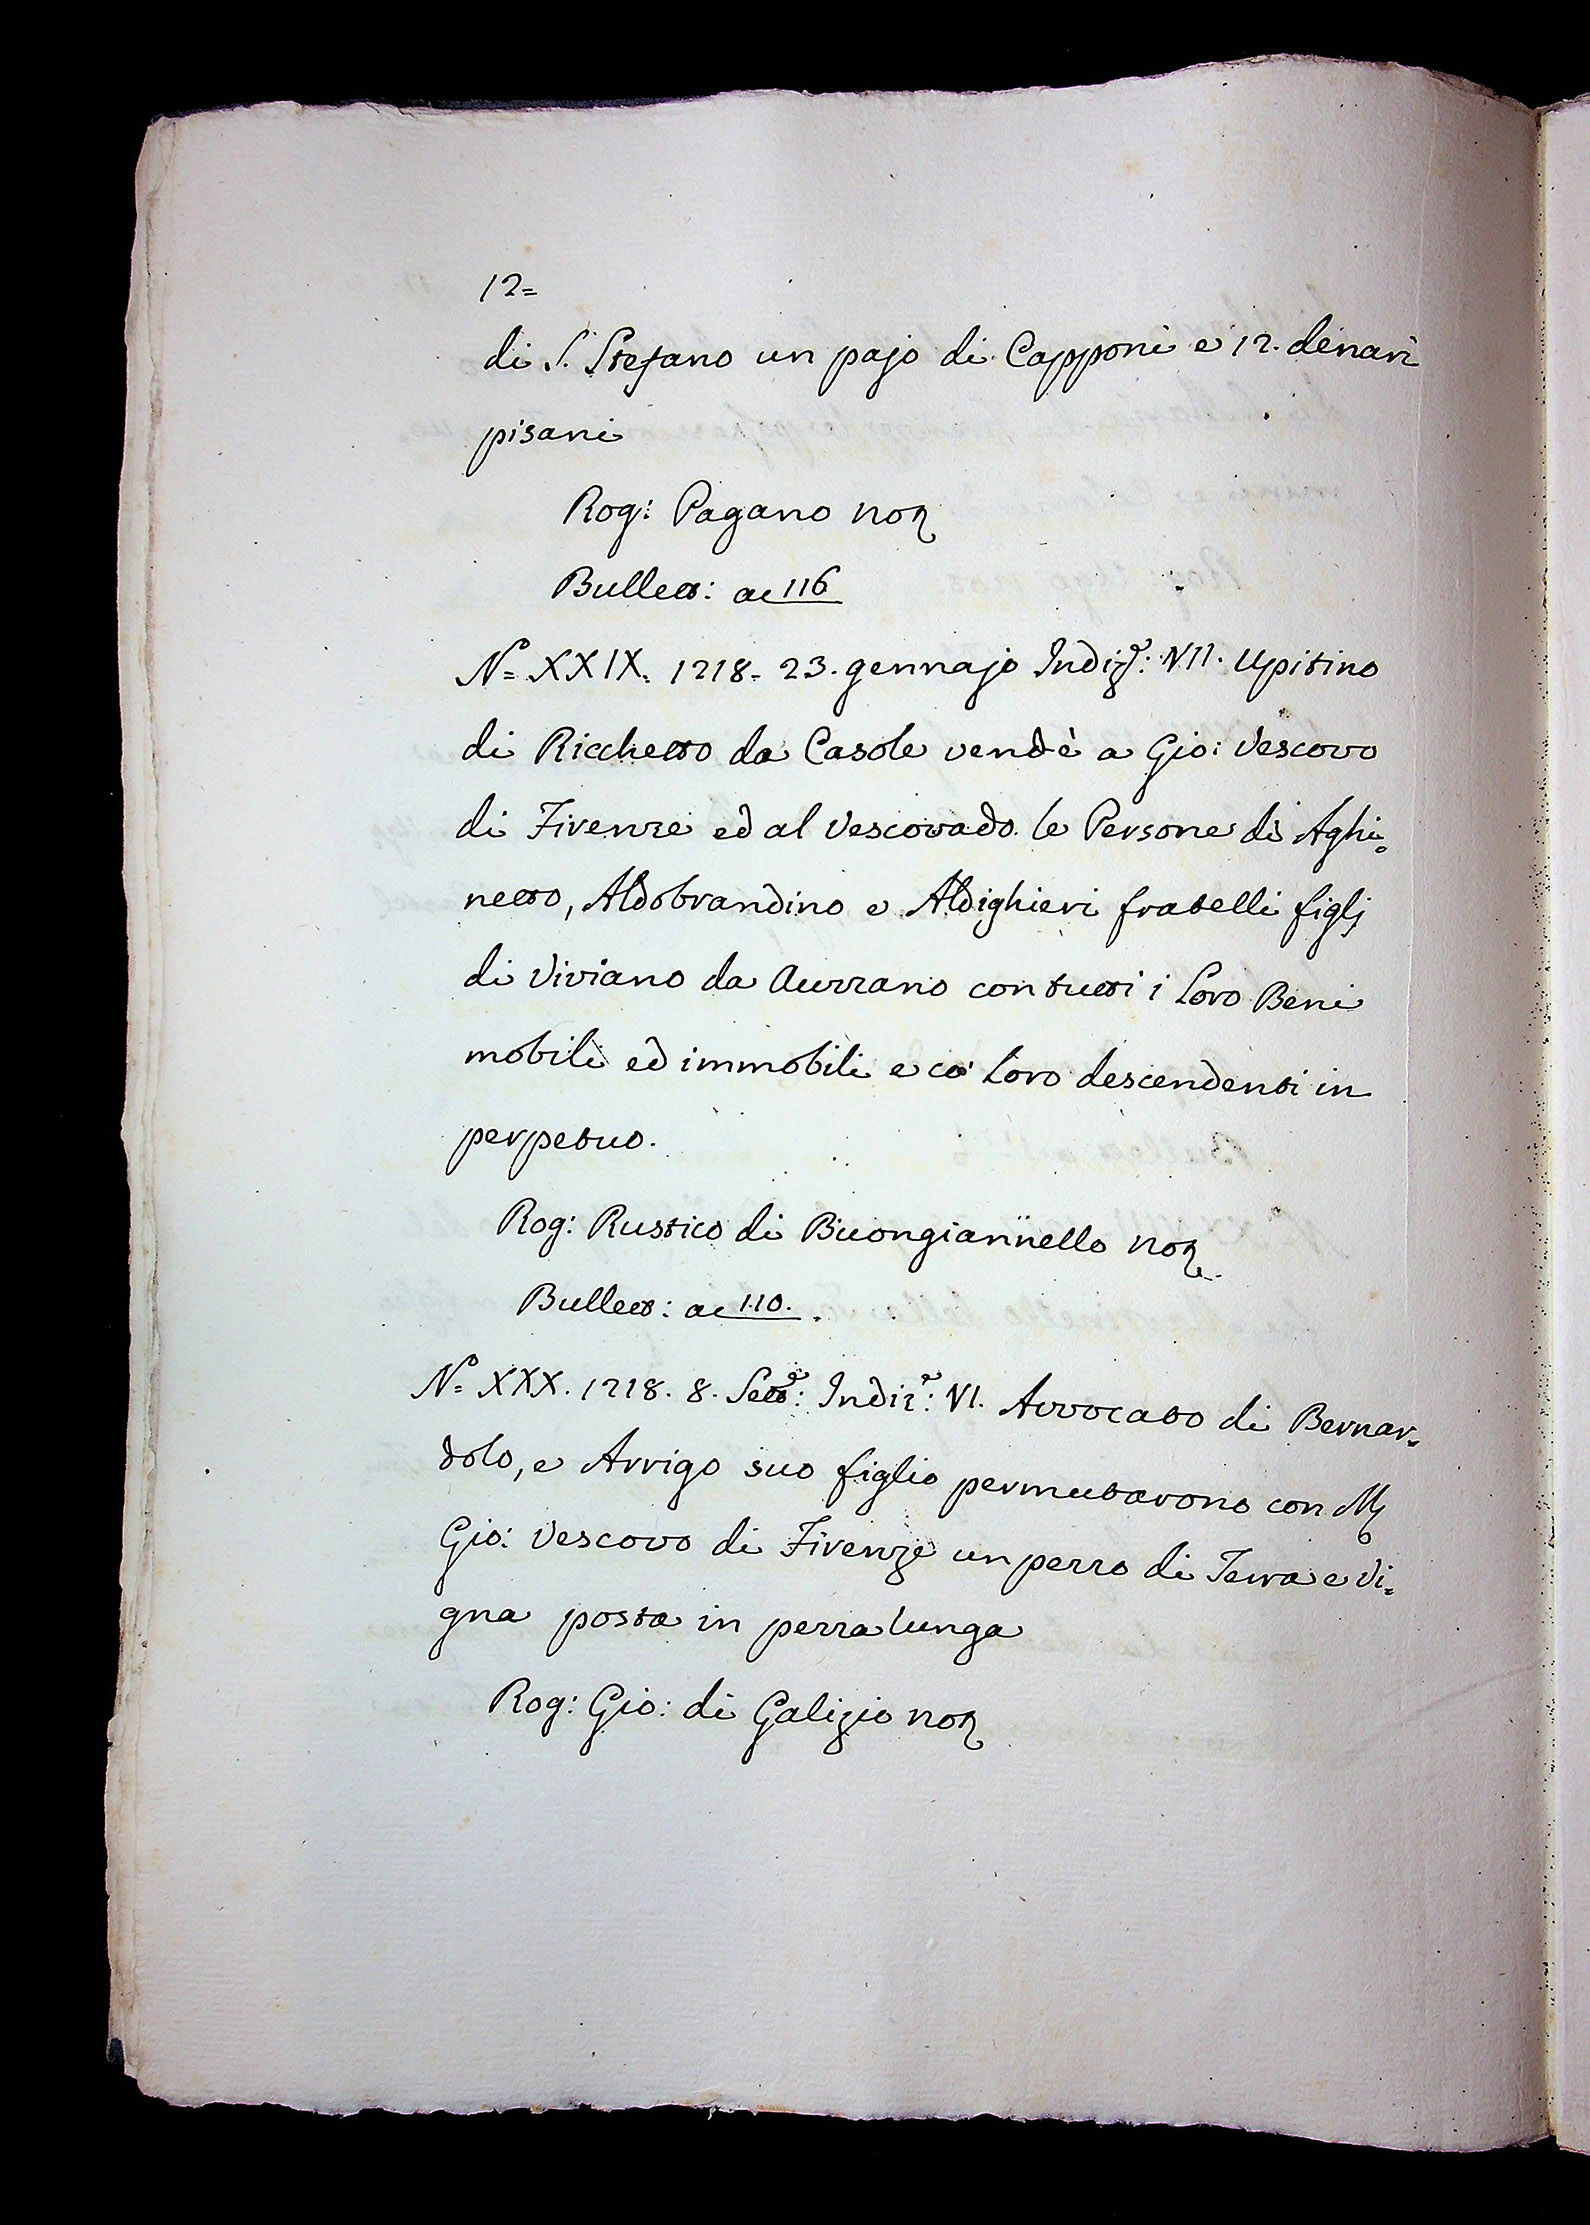 12=
di S. Stefano un pajo di Capponi e 12. denari
pisani
Rog: Pagano not
Bullett: ac 116
N.º XXIX. 1218. 23. gennajo Indizᵉ: VII. Upitino
di Ricchetto da Casole vendè a Gio: Vescovo
di Firenze ed al Vescovado le Persone di Aghi=
netto, Aldobrandino e Aldighieri fratelli figlj
di Viviano da Auzzano con tutti i loro Beni
mobili ed immobili e co' loro descendenti in
perpetuo.
Rog: Rustico di Buongiannello not
Bullett: ac 110.
N.º XXX. 1218. 8. Settᵉ: Indizᵉ: VI. Avvocato di Bernar=
dolo, e Arrigo suo figlio permutarono con M
Gio: Vescovo di Firenze un pezzo di Terra e Vi=
gna posta in pezza lunga
Rog: Gio: di Galizio not